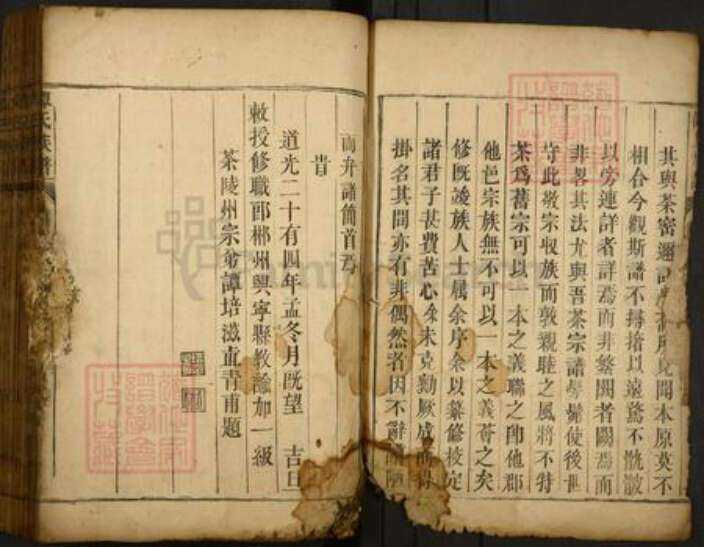 其與茶密邇
見聞本原莫不
相合今觀斯譜不撏撦以遠騖不骩骳
以旁連詳者詳焉而非繁闕者闕焉而
非畧其法尤與吾茶宗譜髣髴使後世
守此敬宗收族而敦親睦之風將不特
茶爲舊宗可以一本之義聯之卽他郡
他邑宗族無不可以一本之義薈之矣
修旣竣族人士屬余序余以纂修校定
諸君子甚費苦心余未克勷厥成而得
掛名其間亦有非偶然者因不辭
而弁諸簡首焉
旹
道光二十有四年孟冬月旣望 吉旦
敕授修職郎郴州興寧縣教諭加一級
茶陵州宗弟譚培滋直青甫題
氏族譜